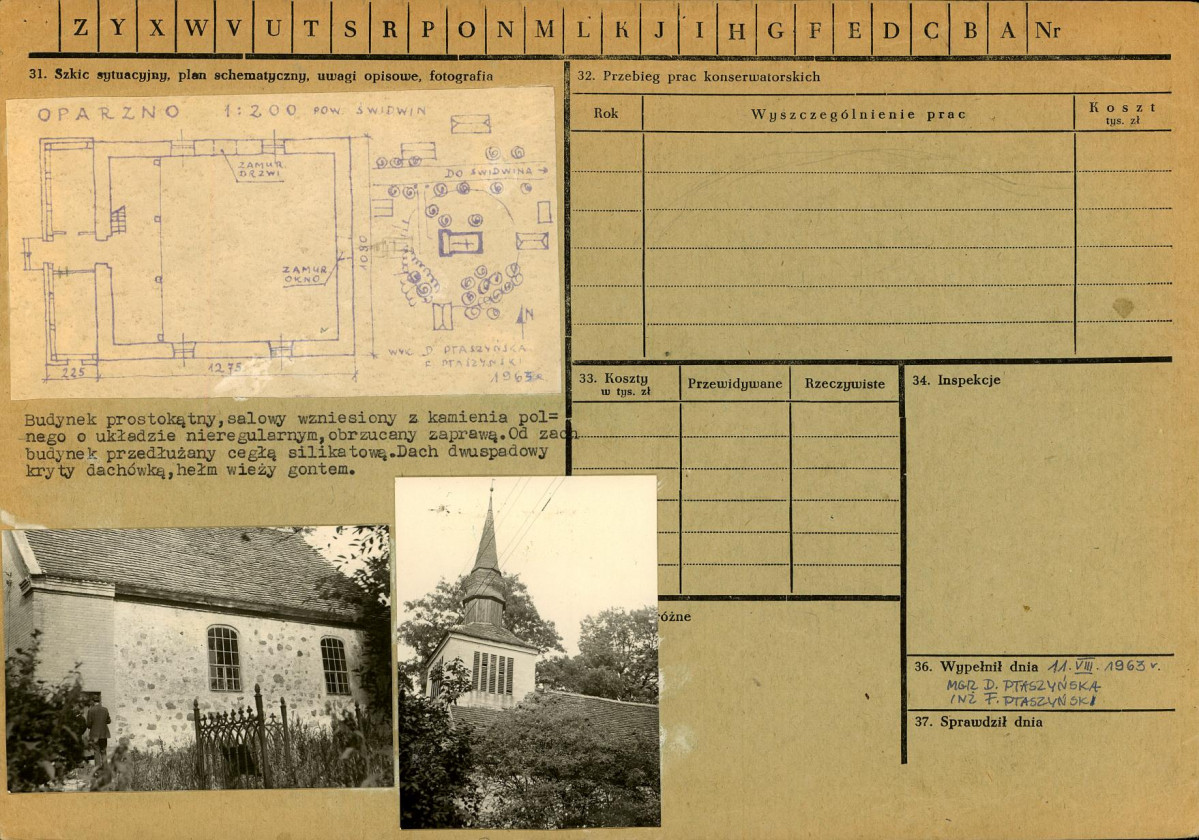 Z Y X W V U T S R P O N M L K J I H G F E D C B A Nr
31. Szkic sytuacyjny, plan schematyczny, uwagi opisowe, fotografia
OPARZNO 1:200 POW. ŚWIDWIN
ZAMUR.
DRZWI
DO ŚWIDWINA
ZAMUR.
OKNO
1080
N
WYK. D. PTASZYŃSKA
F. PTASZYŃSKI
1963 r.
225
1275
Budynek prostokątny,salowy wzniesiony z kamienia pol=
nego o układzie nieregularnym,obrzucany zaprawą.Od zach
budynek przedłużany cegłą silikatową.Dach dwuspadowy
kryty dachówką,hełm wieży gontem.
32. Przebieg prac konserwatorskich
Rok
Wyszczególnienie prac
Koszt
tys. zł
33. Koszty
w tys. zł
Przewidywane
Rzeczywiste
34. Inspekcje
różne
36. Wypełnił dnia 11.VIII.1963 r.
MGR D. PTASZYŃSKA
INŻ F. PTASZYŃSKI
37. Sprawdził dnia